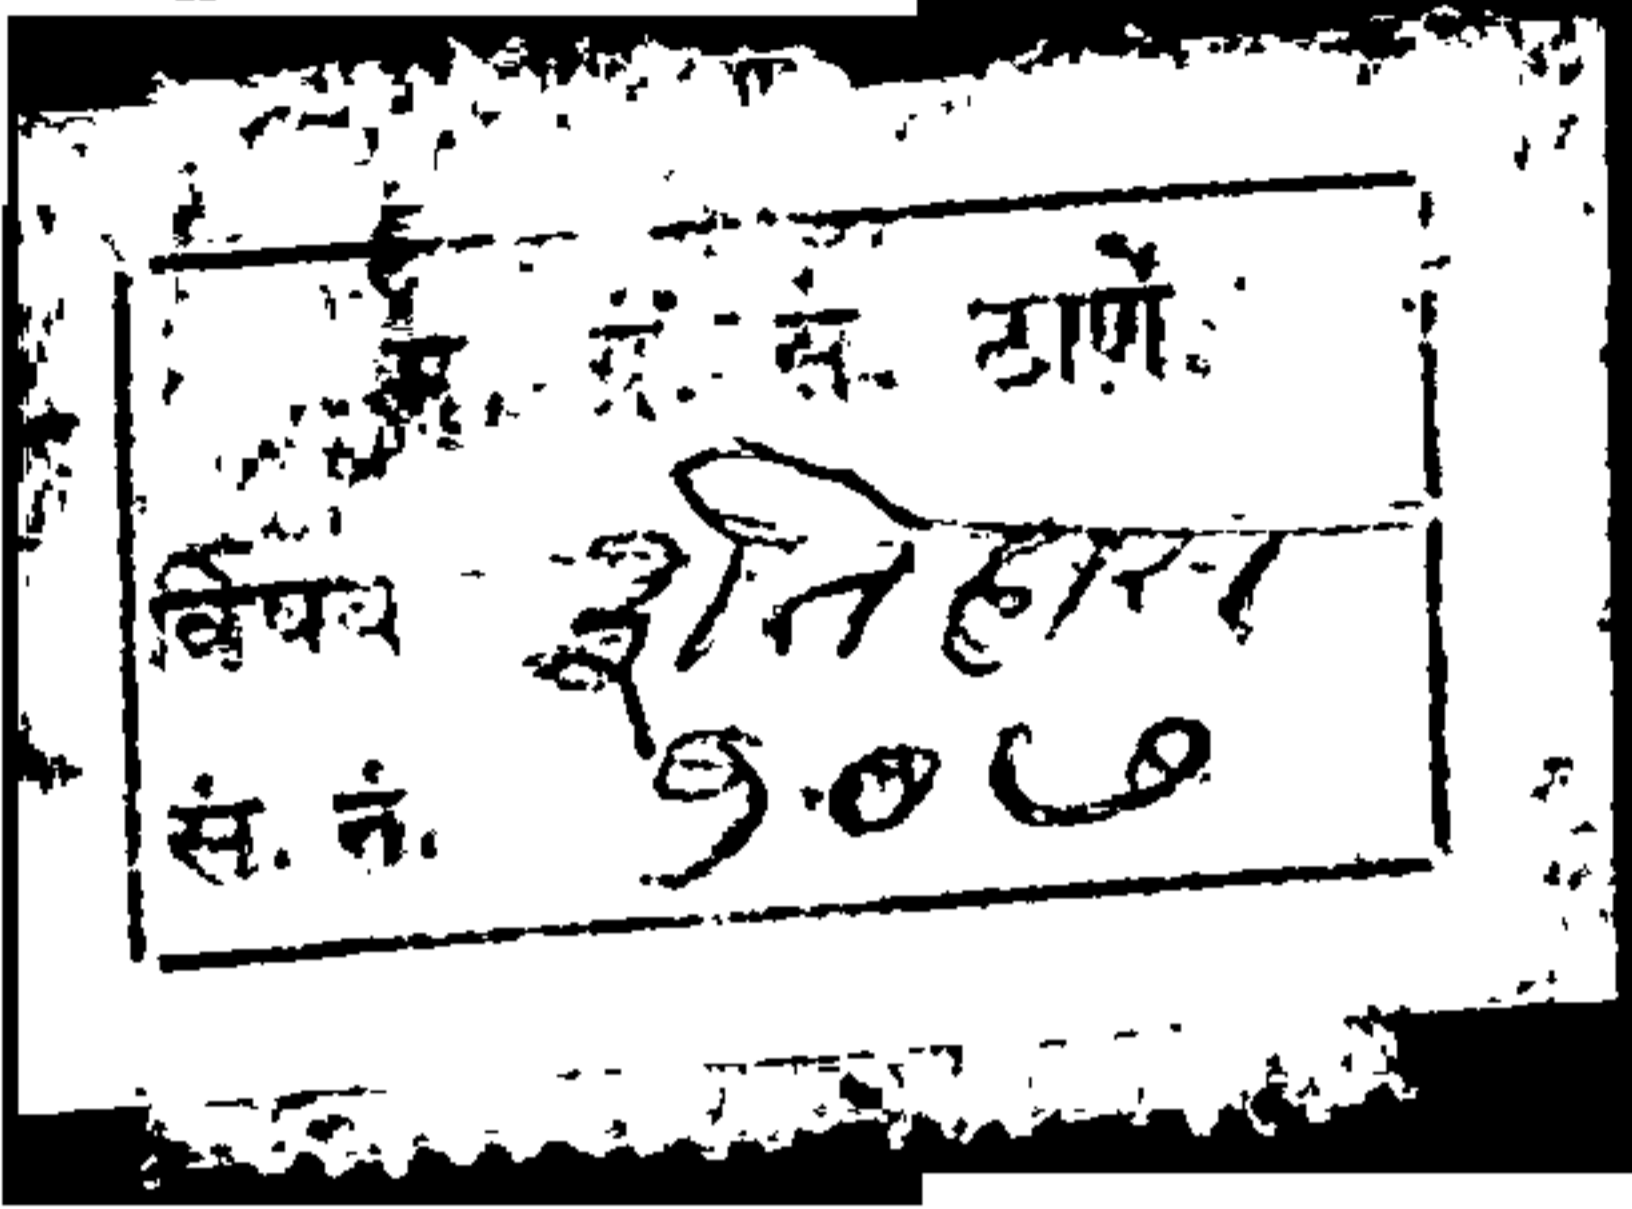 म. ग्रं. सं. ठाणें.
विषय इतिहास
सं. नं. १०७